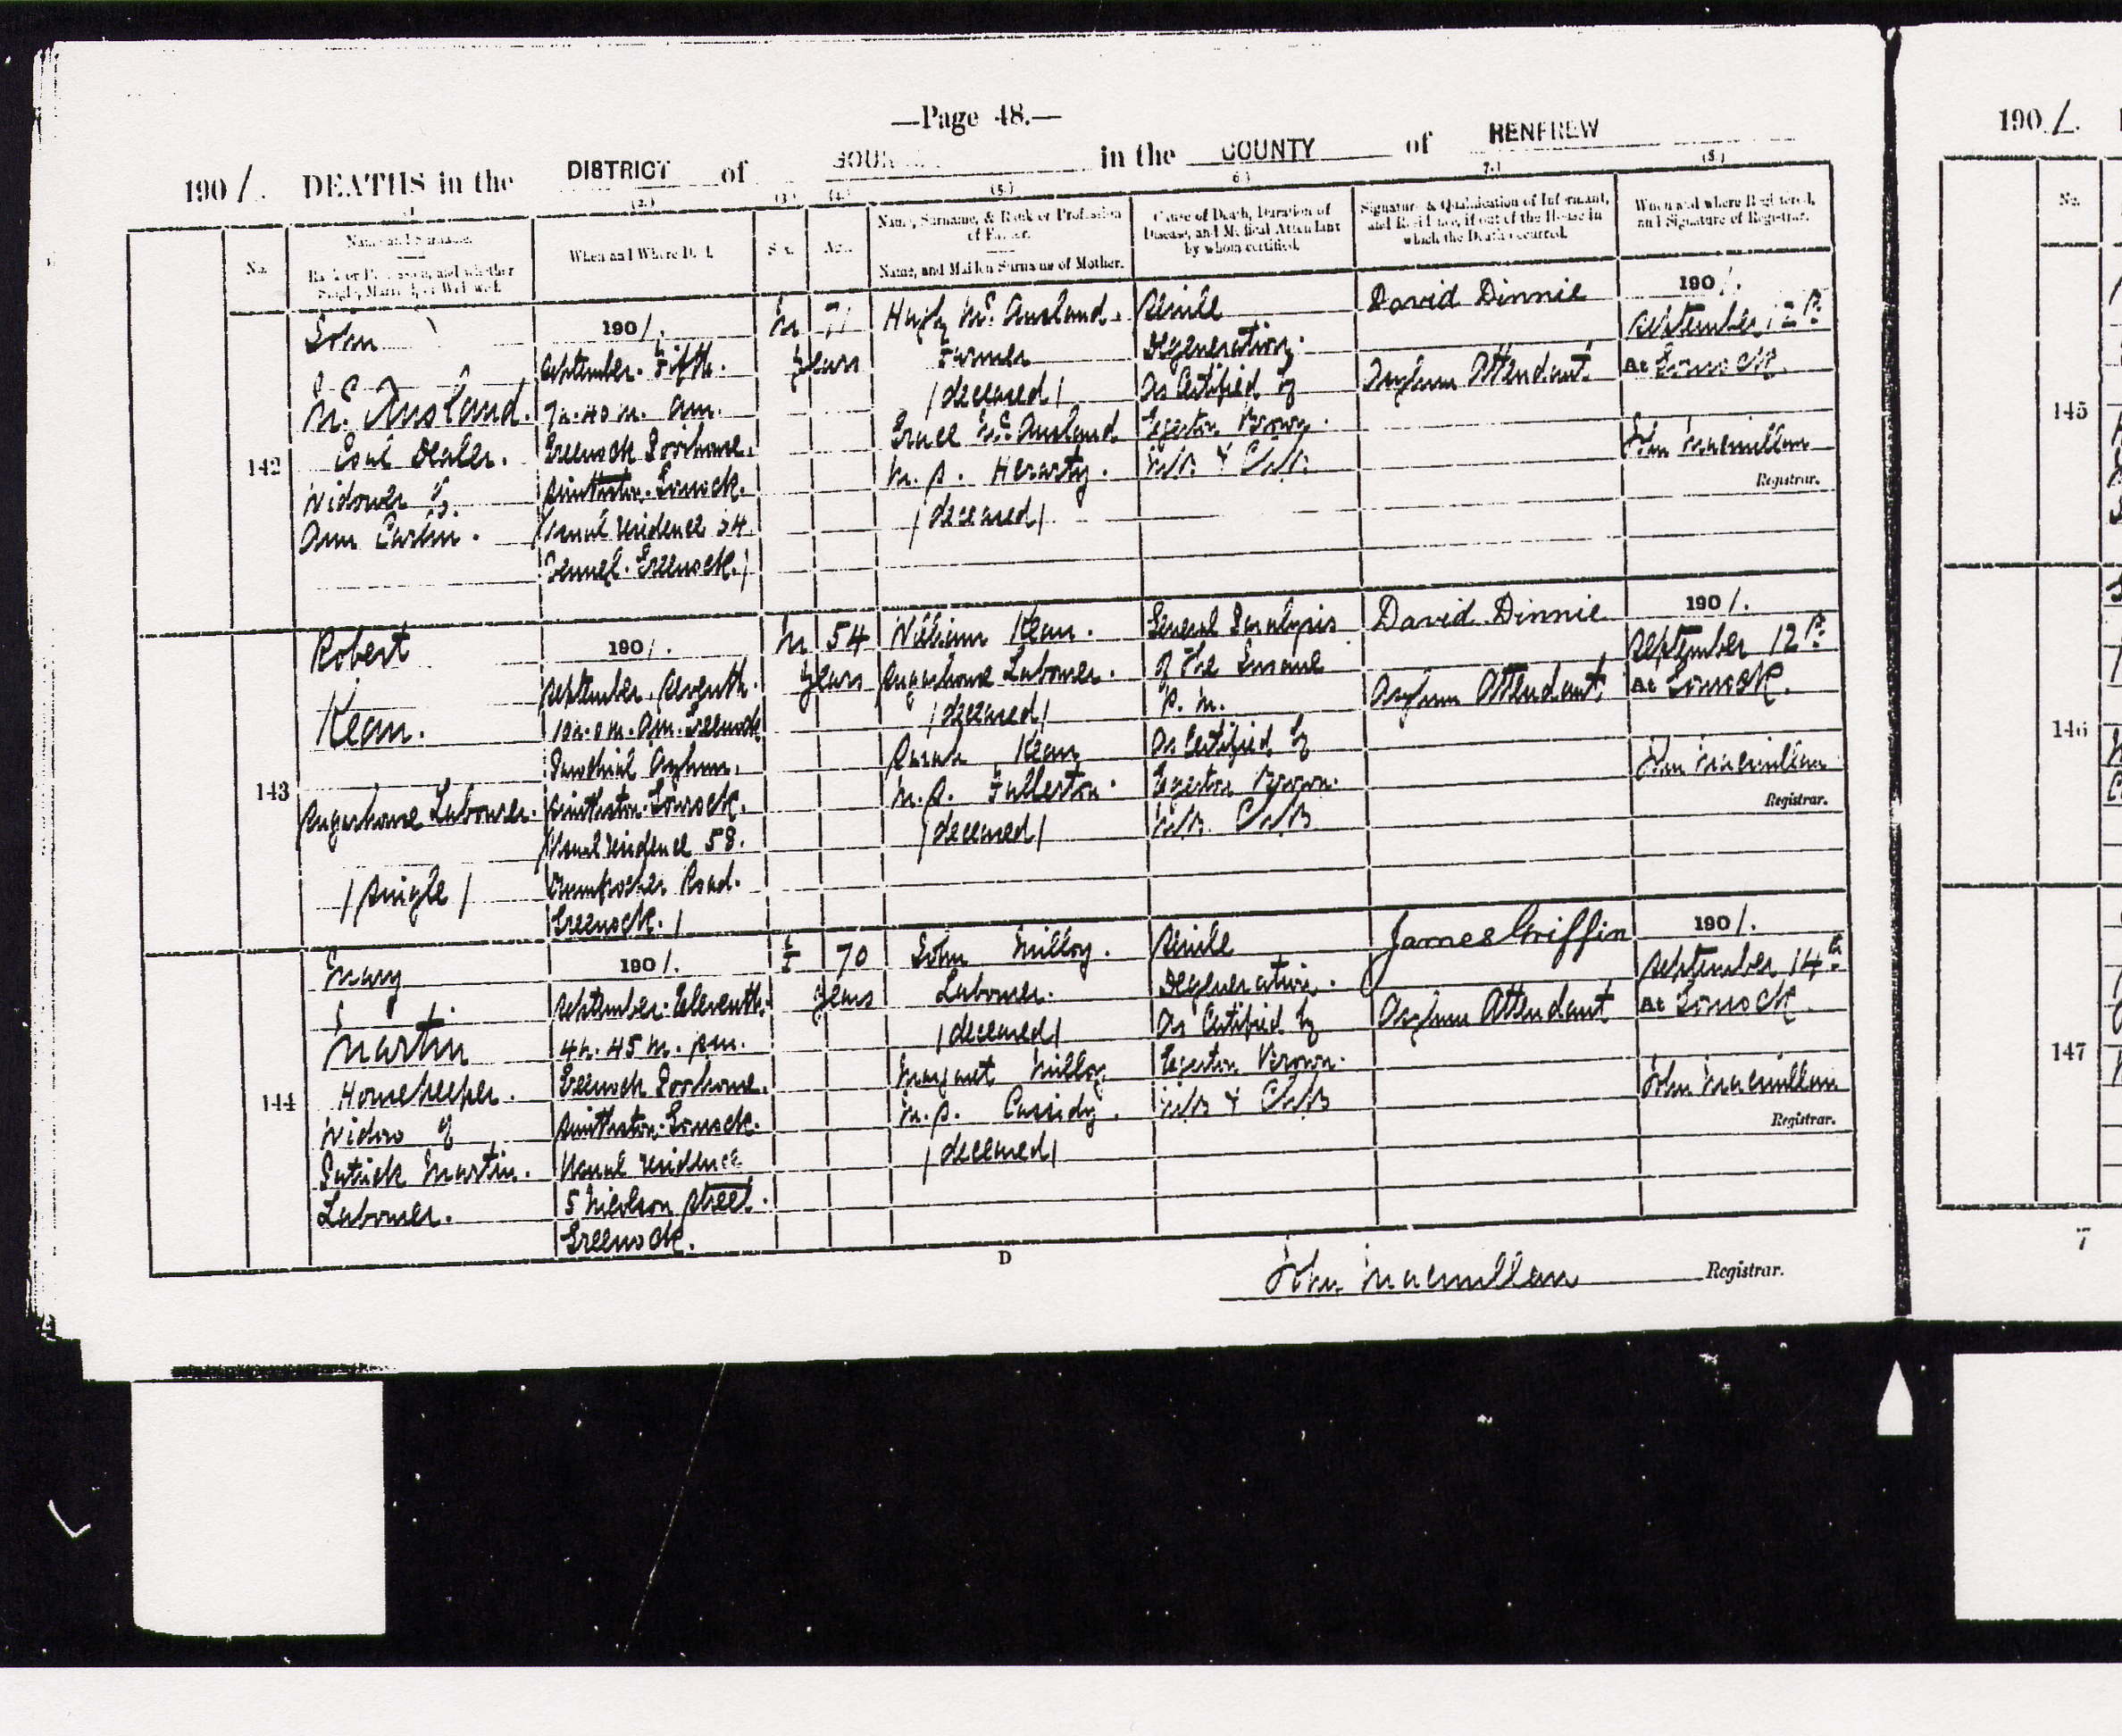 —Page 48.—
1901. DEATHS in the DISTRICT of GOUR in the COUNTY of RENFREW
(1.) (2.) (3.) (4.) (5.) (6.) (7.) (8.)
No.
Name and Surname.
Rank or Profession, and whether Single, Married, or Widowed.
When and Where Died.
Sex.
Age.
Name, Surname, & Rank or Profession of Father.
Name, and Maiden Surname of Mother.
Cause of Death, Duration of Disease, and Medical Attendant by whom certified.
Signature & Qualification of Informant, and Residence, if out of the House in which the Death occurred.
When and where Registered, and Signature of Registrar.
142
John
McAusland.
Coal Dealer.
Widower of
Ann Carlin.
1901.
September. Fifth.
7h. 40m. am.
Greenock Poorhouse.
Smithston. Gourock.
(Usual residence 34
Vennel. Greenock.)
M
71
years
Hugh McAusland.
Farmer
(deceased)
Grace McAusland
M.S.
(deceased)
Senile
Degeneration.
As Certified by
Egerton Brown.
M.B. & Ch.B.
David Dinnie
Asylum Attendant.
1901.
September 12th
At Gourock.
John Macmillan
Registrar.
143
Robert
Kean.
Sugarhouse Labourer.
(Single)
1901.
September. Seventh.
10h. 0m. am. Greenock
Parochial Asylum.
Smithston. Gourock.
(Usual residence 58.
Drumfrochar Road.
Greenock.)
M
54
years
William Kean.
Sugarhouse Labourer.
(deceased)
Sarah Kean
M.S. Fullerton.
(deceased)
General Paralysis
of the Insane
P.M.
As Certified by
Egerton Brown.
M.B. Ch.B.
David Dinnie
Asylum Attendant.
1901.
September 12th
At Gourock.
John Macmillan
Registrar.
144
Mary
Martin
Housekeeper.
Widow of
Patrick Martin.
Labourer.
1901.
September. Eleventh.
4h. 45m. pm.
Greenock Poorhouse.
Smithston. Gourock.
Usual residence
5 Nicolson Street.
Greenock.
F
70
years
John Milloy.
Labourer.
(deceased)
Margaret Milloy
M.S. Cassidy.
(deceased)
Senile
Degeneration.
As Certified by
Egerton Brown.
M.B. & Ch.B.
James Griffin
Asylum Attendant
1901.
September 14th
At Gourock.
John Macmillan
Registrar.
D
John Macmillan Registrar.
1901.
No.
145
146
147
7